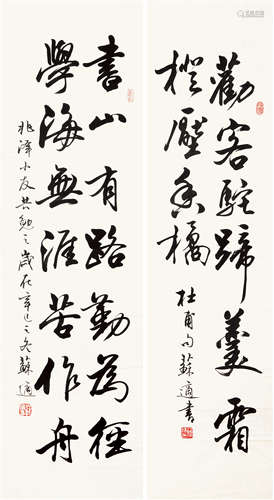 勸客駝蹄羹霜
橙壓香橘
杜甫句蘇適書
書山有路勤為徑
學海無涯苦作舟
兆澤小友共勉之歲在辛巳之冬蘇適